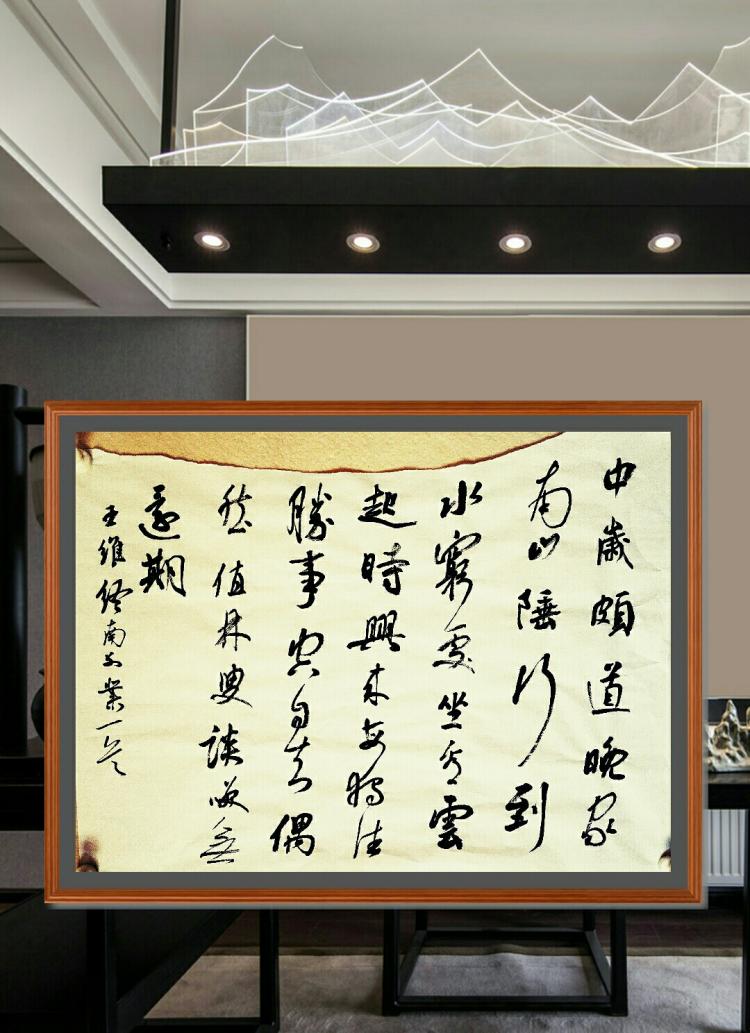 中歲頗道晚家
南山陲行到
水窮處坐看雲
起時興来每獨往
勝事空自知偶
然值林叟談咲無
還期
王維終南業一